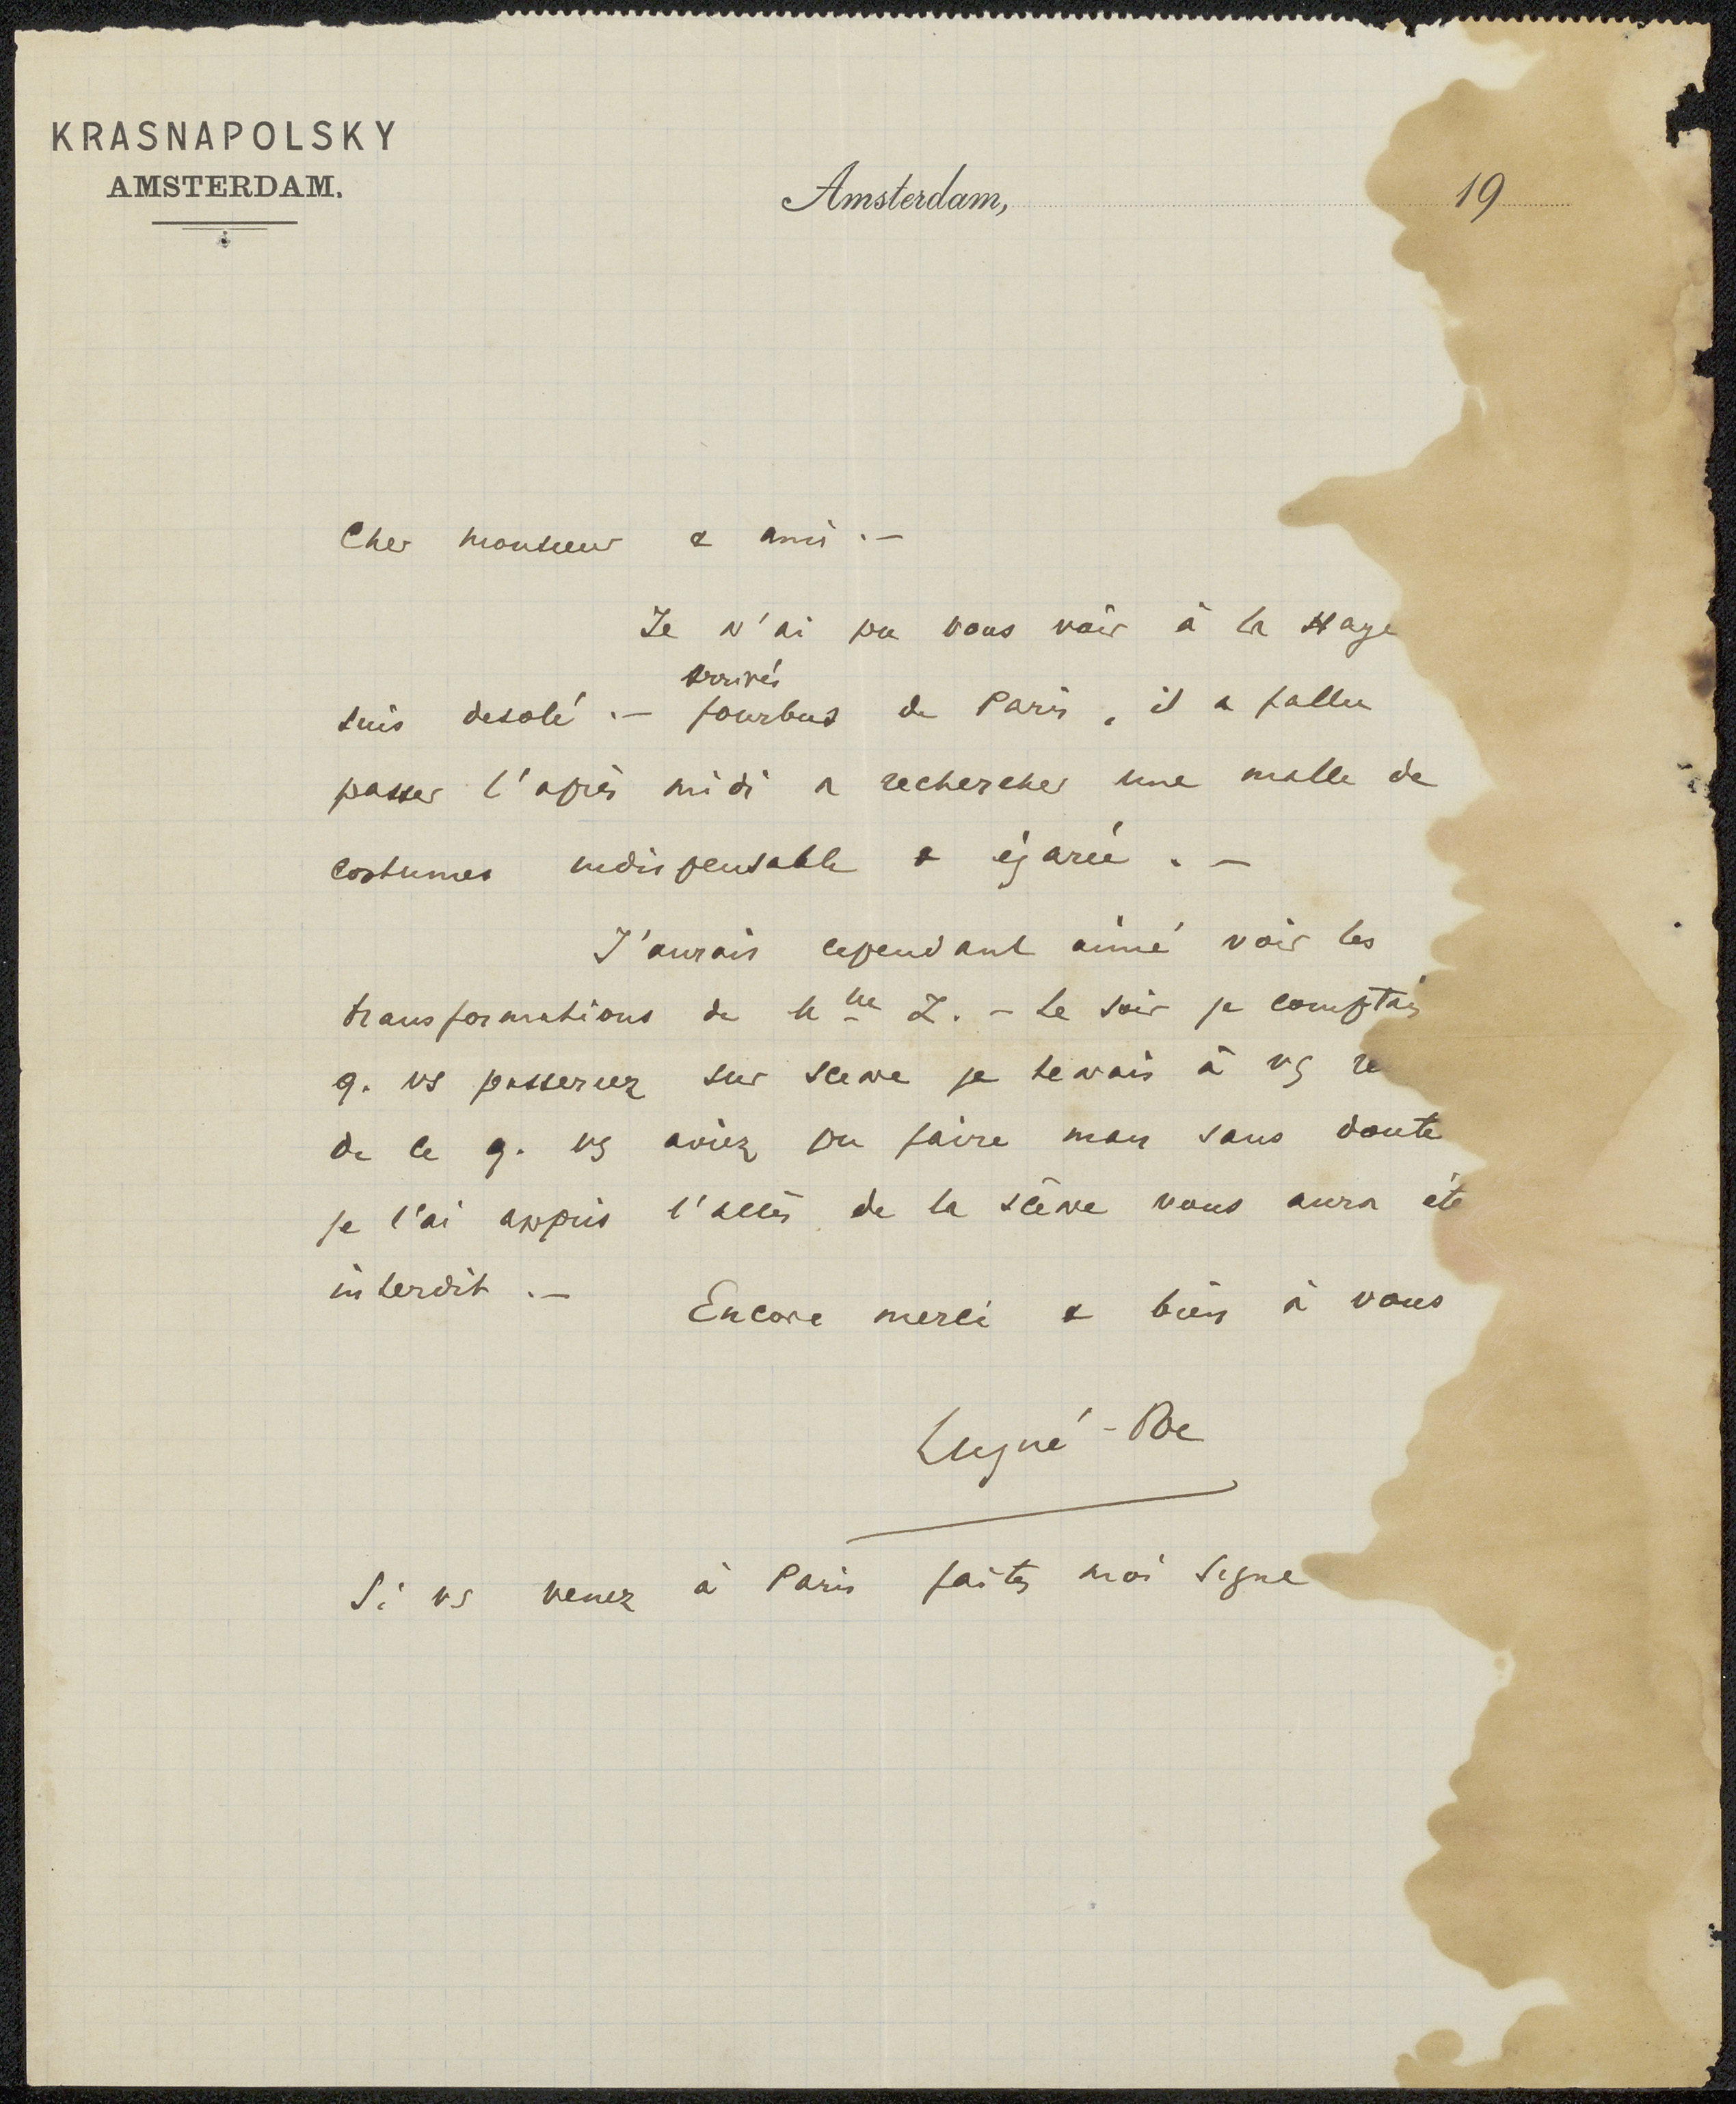 KRASNAPOLSKY
AMSTERDAM.
Amsterdam, 19
Cher monsieur & ami .—
Je n'ai pu vous voir à la Haye
suis desolé .— arrivés fourbus de Paris, il a fallu
passer l'après midi a rechercher une malle de
costumes indispensable & égarée . —
J'aurais cependant aimé voir les
transformations de Mme Z. — Le soir je comptais
q. vs passeriez sur scene je tenais à vs
de ce q. vs aviez pu faire mais sans doute
je l'ai appris l'accès de la scène vous aura été
interdit .— Encore merci & bien à vous
Lugné-Poe
Si vs venez à Paris faites moi signe